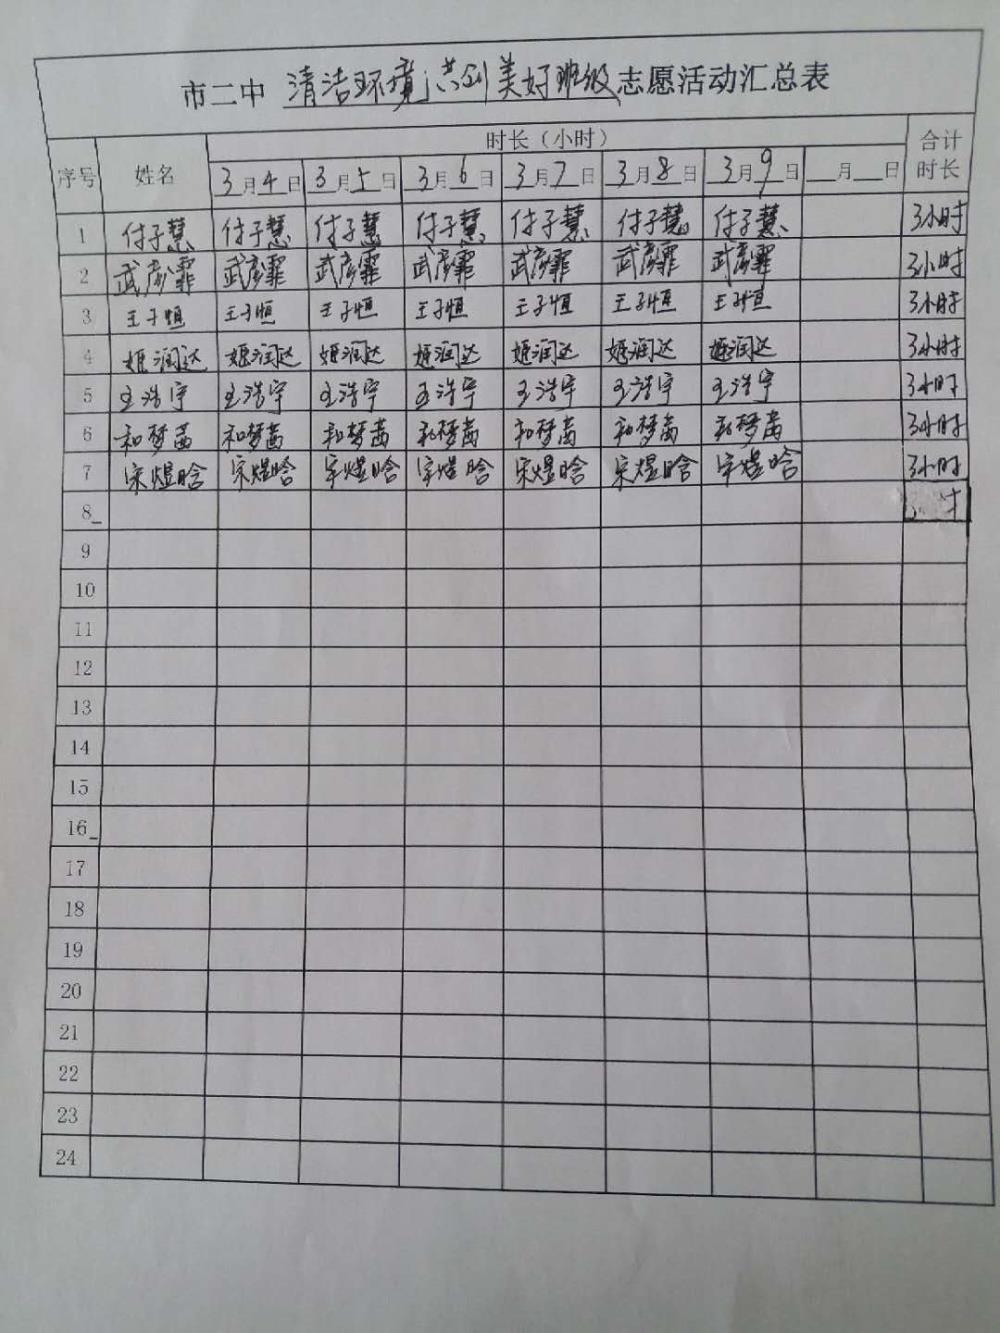 市二中 清洁环境,共创美好班级 志愿活动汇总表
序号 姓名 时长（小时） 合计时长
3月4日 3月5日 3月6日 3月7日 3月8日 3月9日 __月__日
1 付子慧 付子慧 付子慧 付子慧 付子慧 付子慧 付子慧 3小时
2 武彦霏 武彦霏 武彦霏 武彦霏 武彦霏 武彦霏 武彦霏 3小时
3 王子恒 王子恒 王子恒 王子恒 王子恒 王子恒 王子恒 3小时
4 姬润达 姬润达 姬润达 姬润达 姬润达 姬润达 姬润达 3小时
5 王浩宇 王浩宇 王浩宇 王浩宇 王浩宇 王浩宇 王浩宇 3小时
6 和梦茜 和梦茜 和梦茜 和梦茜 和梦茜 和梦茜 和梦茜 3小时
7 宋煜晗 宋煜晗 宋煜晗 宋煜晗 宋煜晗 宋煜晗 宋煜晗 3小时
8
9
10
11
12
13
14
15
16
17
18
19
20
21
22
23
24